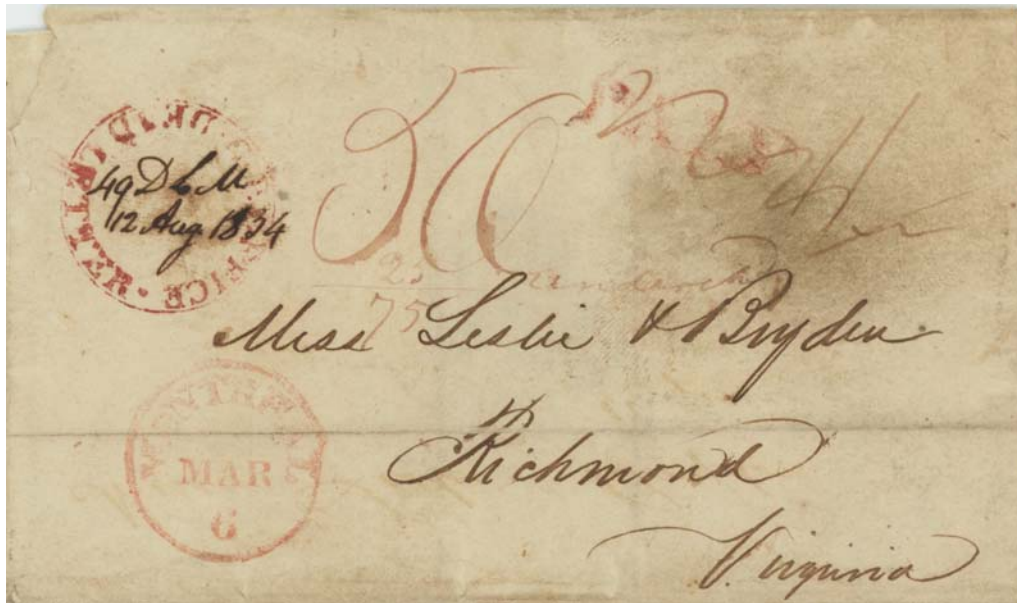 DEAD LETTER OFFICE
49 D L M
12 Aug 1834
50
25
75
Mess Leslie & Bryden
Richmond
Virginia
MONTREAL
MAR
6